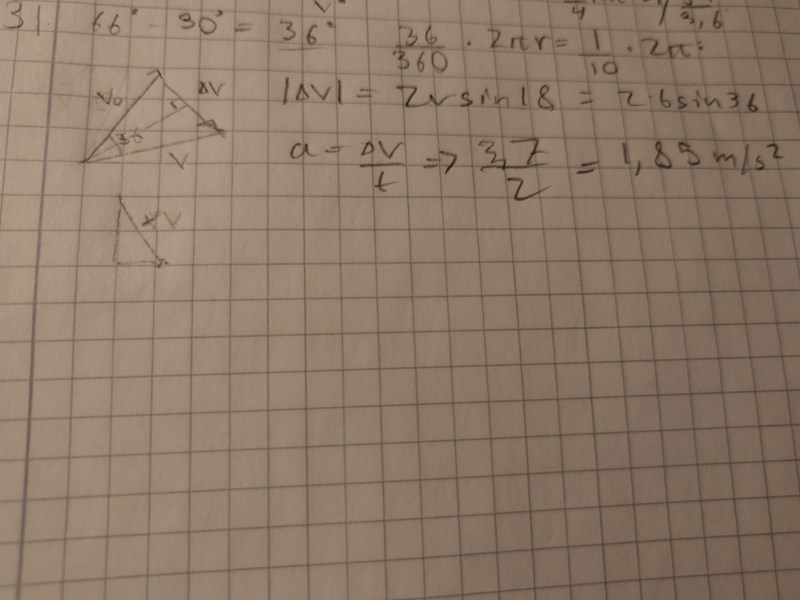 31. 66° - 30° = 36° 36/360 · 2πr = 1/10 · 2π
V₀ ΔV |ΔV| = 2v sin18 = 2·6sin36
36
V a = ΔV/t => 3,7/2 = 1,85 m/s²
V